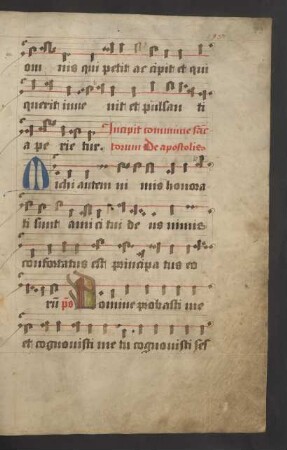 om nis qui petit ac cipit et qui
querit inve nit et pulsan ti
a pe rie tur. Incipit commune sāc
torum De apostolis.
Michi autem ni mis honora
ti sunt ami ci tui de us nimis
confortatus est principa tus eo
rū ps Domine probasti me
et cognovisti me tu cognovisti ses